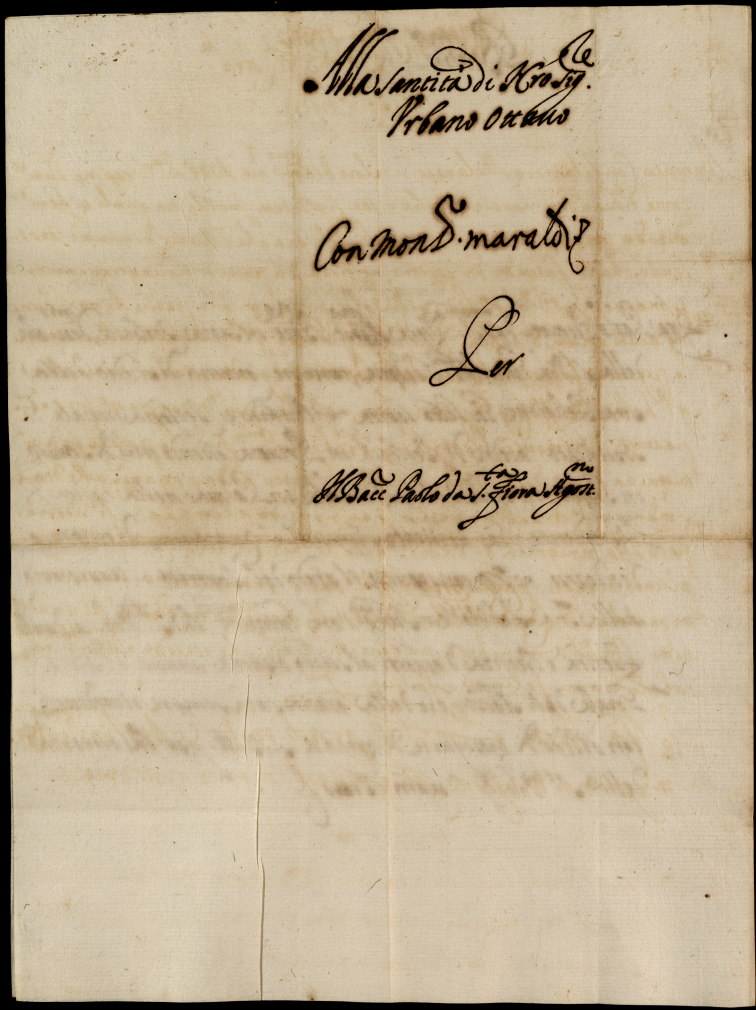 Alla santità di Nro Sig.re
Vrbano Ottauo
Con Mons.r maraldi
Per
Il Bacc Paolo da S.ta Fiora Agost.no